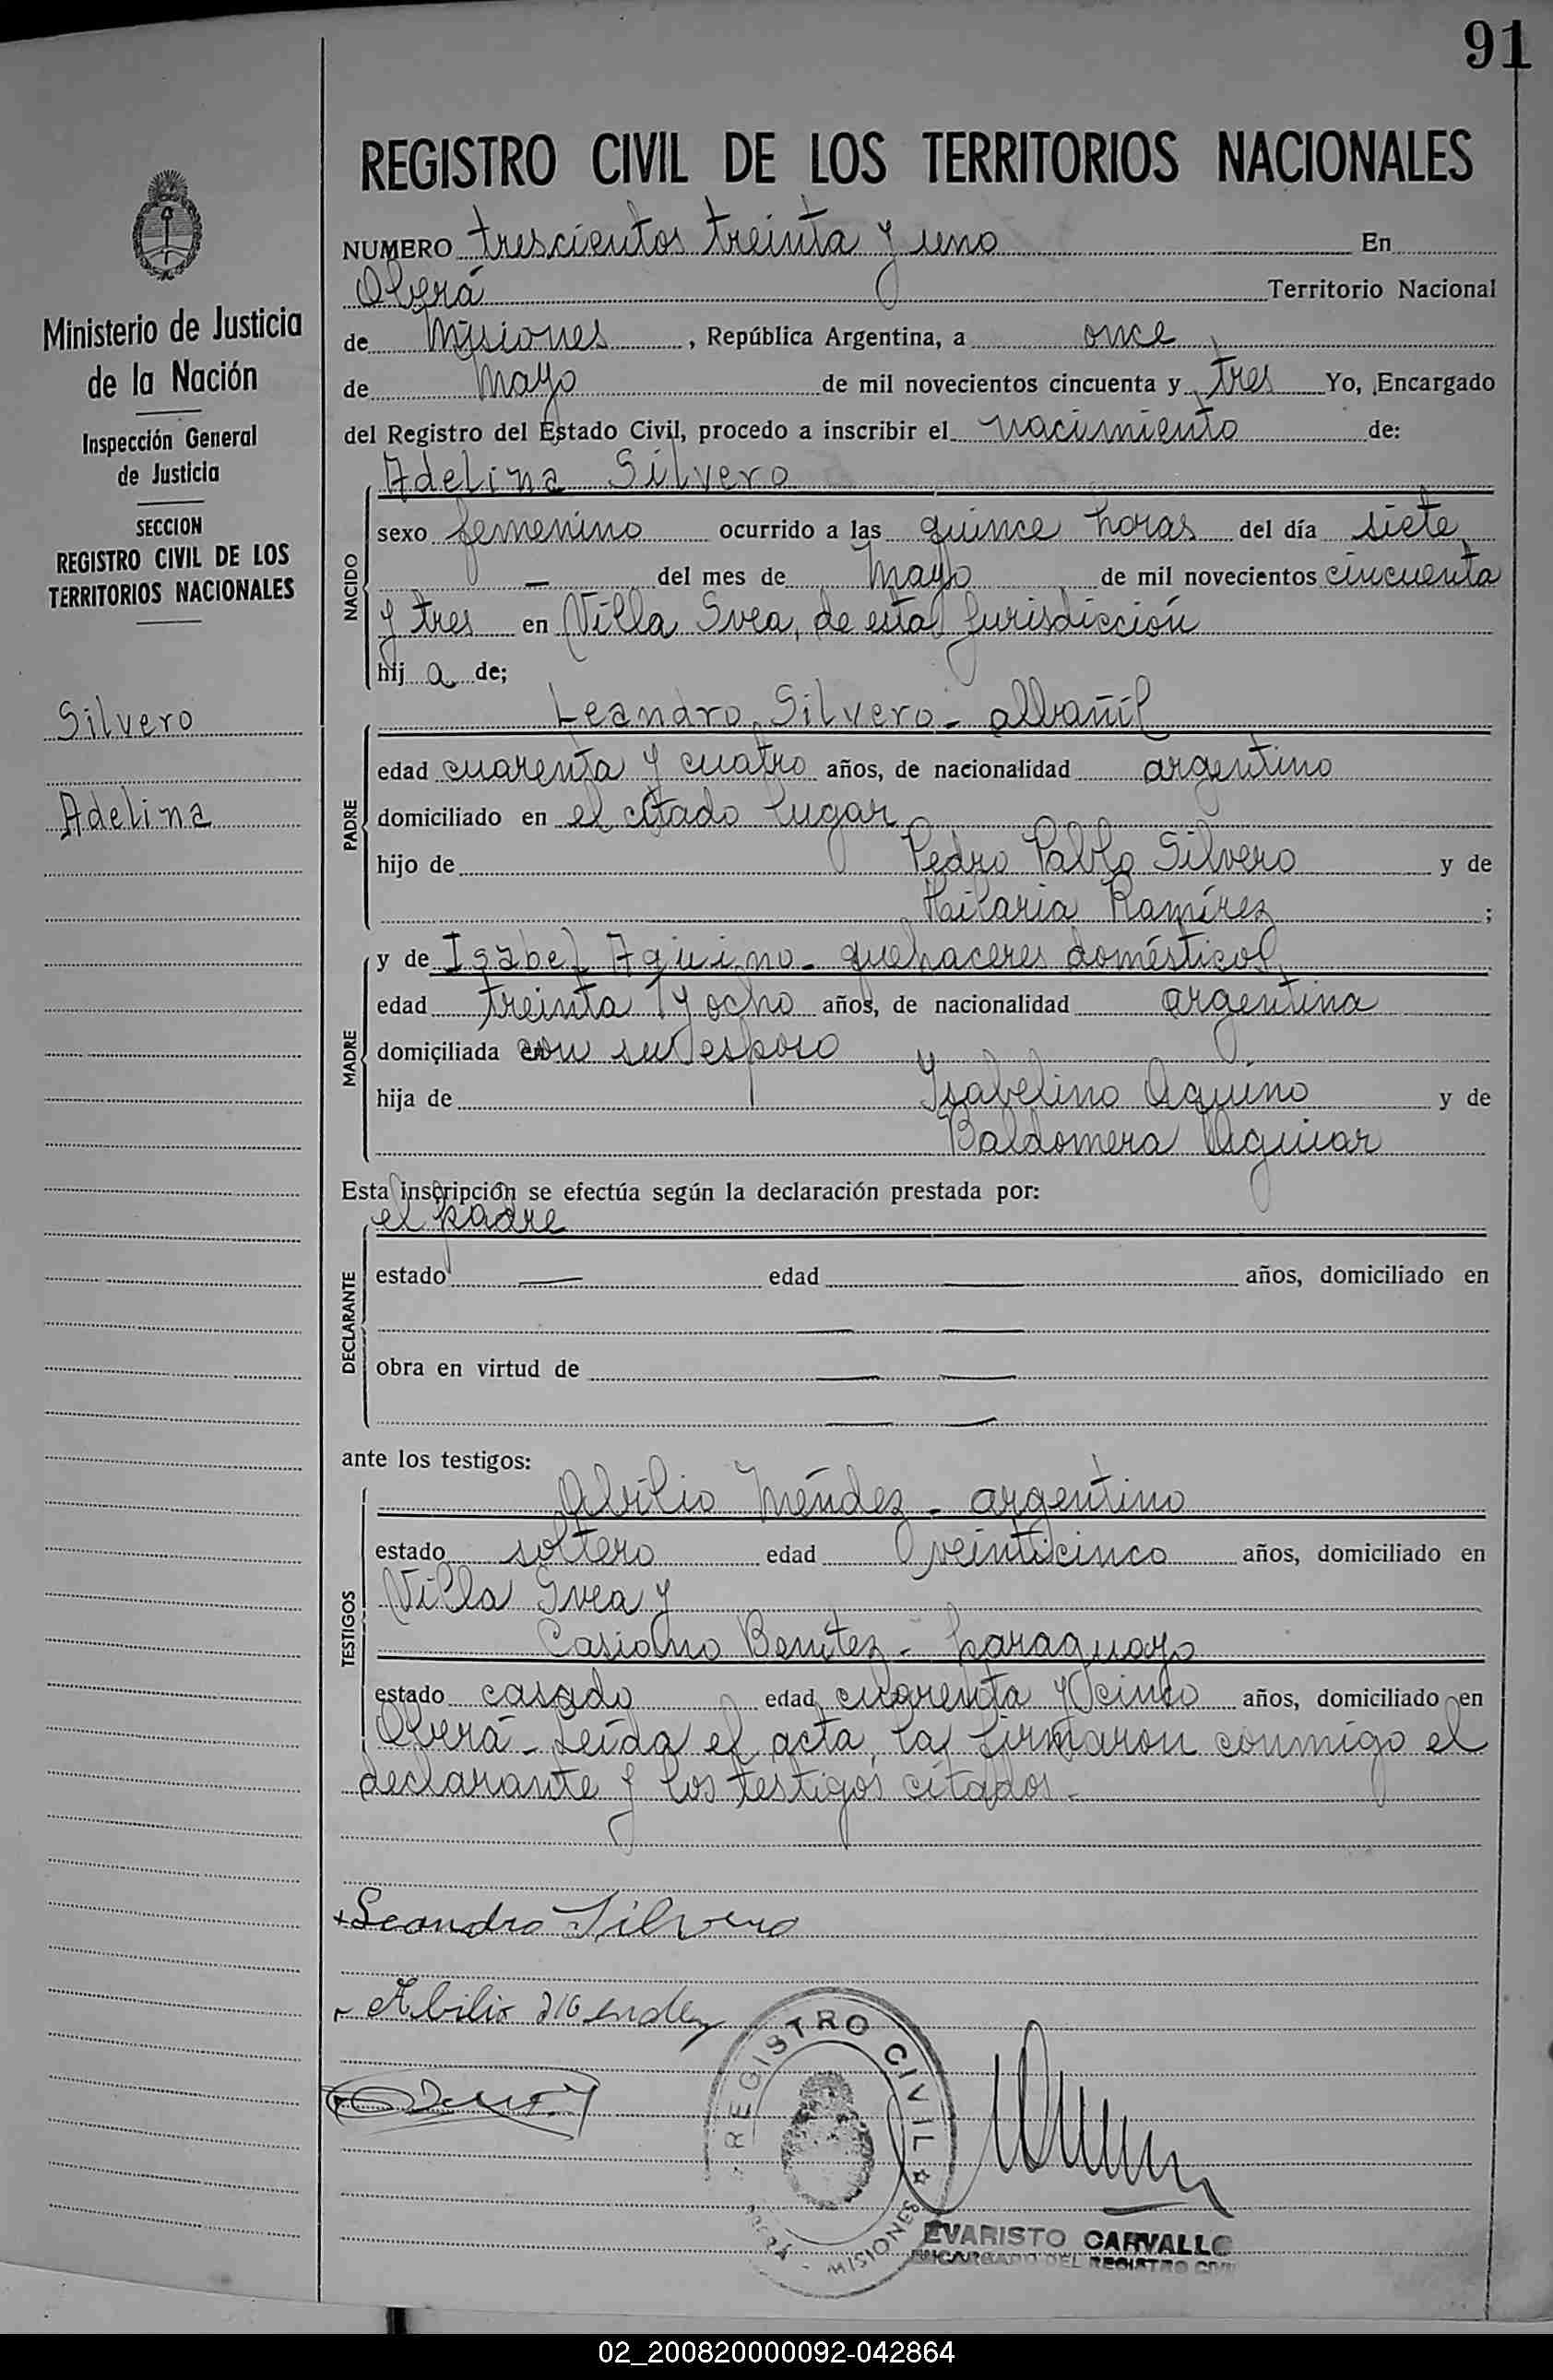 91
REGISTRO CIVIL DE LOS TERRITORIOS NACIONALES
Ministerio de Justicia
de la Nación
Inspección General
de Justicia
SECCION
REGISTRO CIVIL DE LOS
TERRITORIOS NACIONALES
Silvero
Adelina
NUMERO trescientos treinta y uno En
Oberá Territorio Nacional
de Misiones, República Argentina, a once
de Mayo de mil novecientos cincuenta y tres Yo, Encargado
del Registro del Estado Civil, procedo a inscribir el nacimiento de:
Adelina Silvero
NACIDO
sexo femenino ocurrido a las quince horas del día siete
— del mes de Mayo de mil novecientos cincuenta
y tres en Villa Svea, de esta Jurisdicción
hija de;
Leandro Silvero - albañil
PADRE
edad cuarenta y cuatro años, de nacionalidad argentino
domiciliado en el citado lugar
hijo de Pedro Pablo Silvero y de
Hilaria Ramírez ;
y de Isabel Aquino - quehaceres domésticos
MADRE
edad treinta y ocho años, de nacionalidad argentina
domiciliada con su esposo
hija de Ysabelino Aquino y de
Baldomera Aguiar
Esta inscripción se efectúa según la declaración prestada por:
el padre
DECLARANTE
estado — edad — años, domiciliado en
— —
obra en virtud de — —
— —
ante los testigos:
Abilio Méndez - argentino
TESTIGOS
estado soltero edad veinticinco años, domiciliado en
Villa Svea y
Casiano Benítez - paraguayo
estado casado edad cuarenta y cinco años, domiciliado en
Oberá - Leída el acta, la firmaron conmigo el
declarante y los testigos citados -
Leandro Silvero
Abilio Mendez
REGISTRO CIVIL
MISIONES
EVARISTO CARVALLO
ENCARGADO DEL REGISTRO CIVIL
02_200820000092-042864